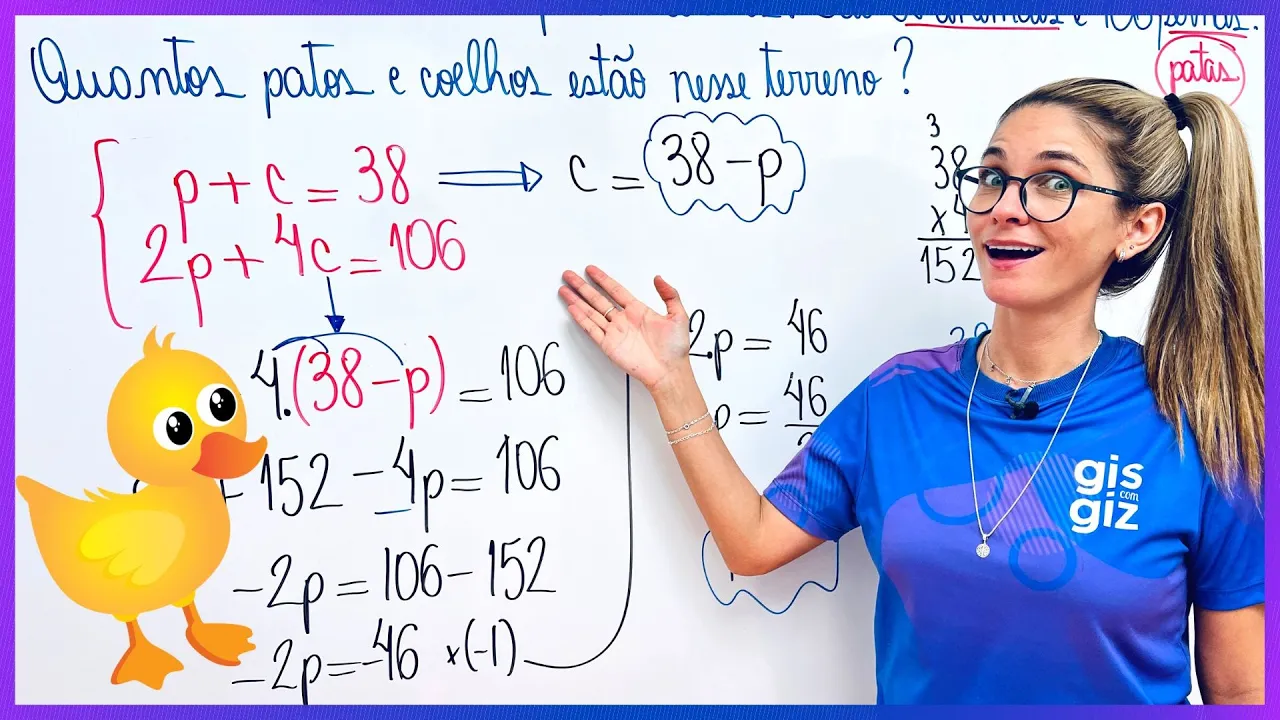 106 pernas.
patas
Quantos patos e coelhos estão nesse terreno?
p + c = 38 ⟹ c = 38 - p
2p + 4c = 106
4.(38 - p) = 106
152 - 4p = 106
-2p = 106 - 152
-2p = -46 x(-1)
2p = 46
p = 46
3
38
x 4
152
gis
com
giz